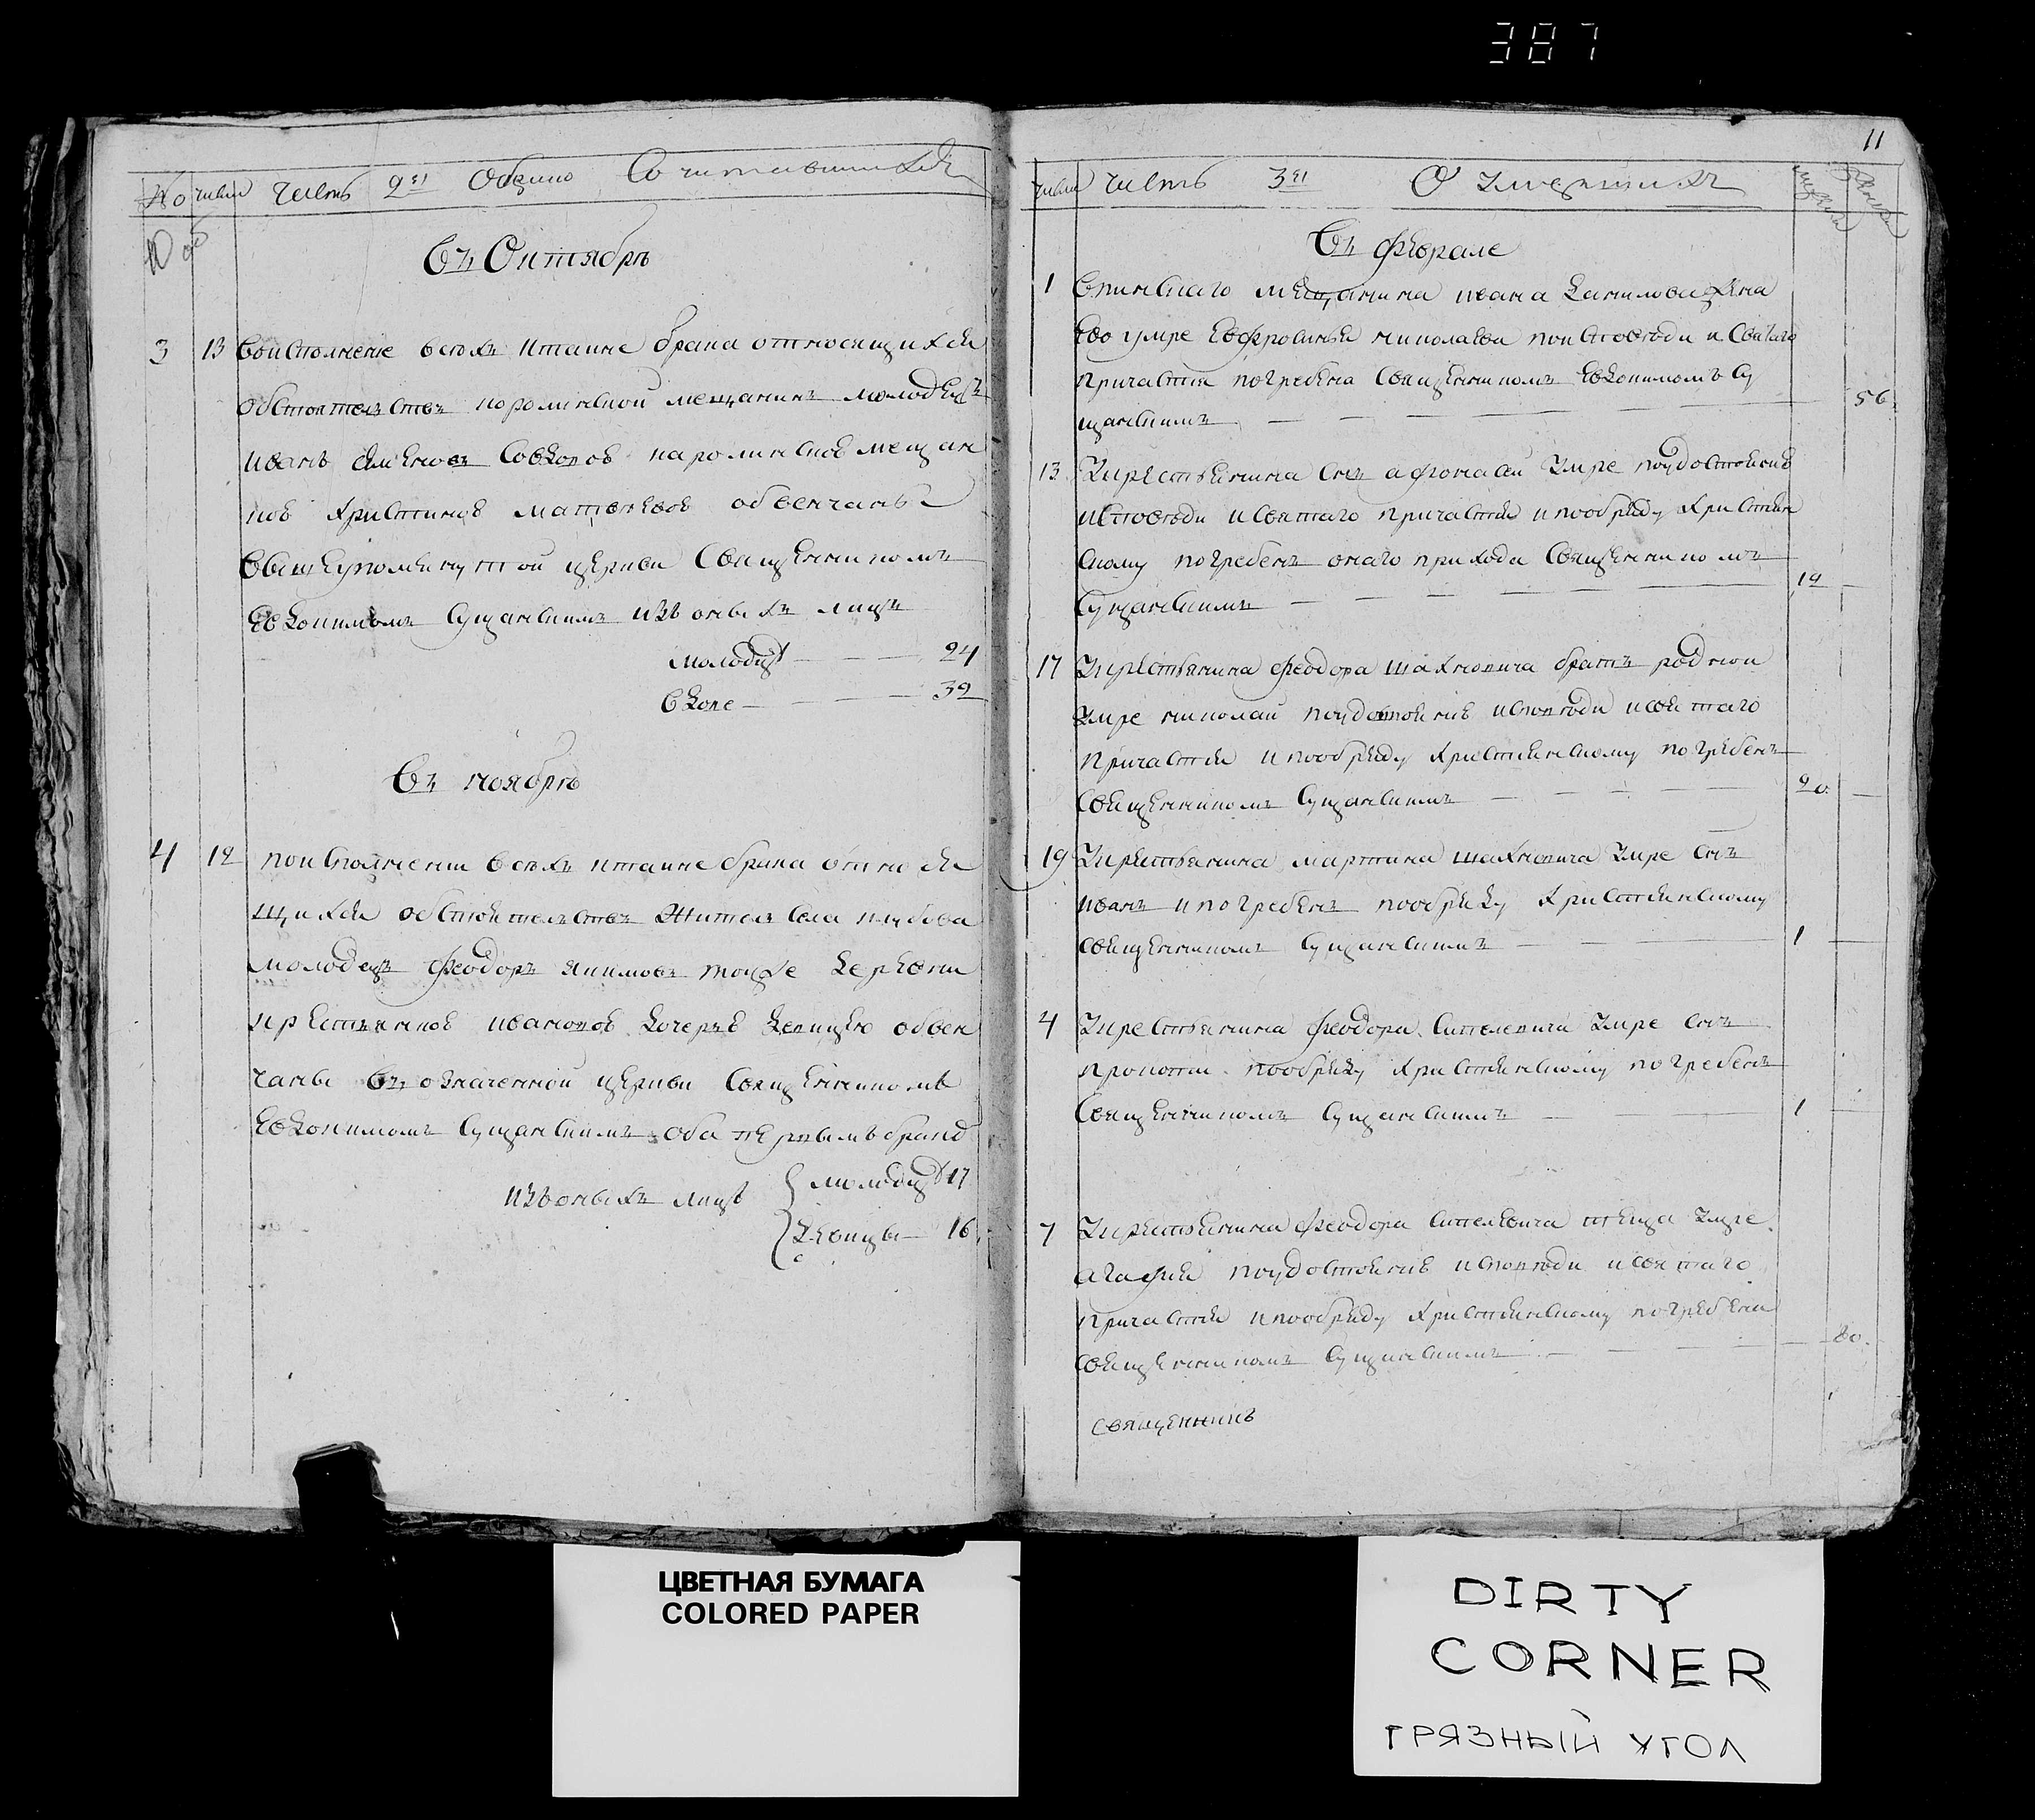 387
№ число часть 2я О бракосочетавшихся
10 об
Въ Октябрѣ
3 13 Воисполнение всѣхъ ктаине брака относящихся
обстоятельствъ наролинской мещанинъ молодецъ
Иванъ Совою наролинскою мещан
кою Христиною Матвѣевою обвенчаны
Ввышеупомянутой церкви Священникомъ
Евдокимомъ Сущанскимъ изъ оныхъ лицъ
молодцу 24
вдове 32
Въ ноябрѣ
4 12 поисполнении всѣхъ ктаине брака относя
щихся обстоятельствъ житель села
молодецъ Феодоръ якимовъ тоейже деревни
крестьянкою Ивановою дочерью девицею обвен
чаны Въ означенной церкви Священникомъ
Евдокимомъ Сущанскимъ оба первымъ бракомъ
изъоныхъ лицъ молодцу 17
Девицы 16
11
число часть 3я О умершихъ
мужеска женска
Въ феврале
1 мещанина Ивана Данилова жена
его умре Евфросинья николаева поисповѣди и Святаго
причастия погребена Священникомъ Евдокимомъ Су
щанскимъ 56
13 Укрестьянина сынъ афонасий Умре поудостоению
исповѣди исвятаго причастия ипообряду христиан
скому погребенъ онаго прихода Священникомъ
Сущанскимъ 12
17 Укрестьянина Феодора шахновича братъ родной
Умре николай поудостоению исповѣди исвятаго
причастия ипообряду христианскому погребенъ
Священникомъ Сущанскимъ 20
19 Укрестьянина мартина шахновича Умре сынъ
иванъ ипогребенъ пообряду христианскому
священникомъ Сущанскимъ 1
4 Укрестьянина Феодора Умре сынъ
прокопий пообряду христианскому погребенъ
Священникомъ Сущанскимъ 1
7 Укрестьянина Феодора теща Умре
агафия поудостоению исповѣди исвятаго
причастия ипообряду христианскому погребена
священникомъ Сущанскимъ 80
священникъ
ЦВЕТНАЯ БУМАГА
COLORED PAPER
DIRTY
CORNER
ГРЯЗНЫЙ УГОЛ